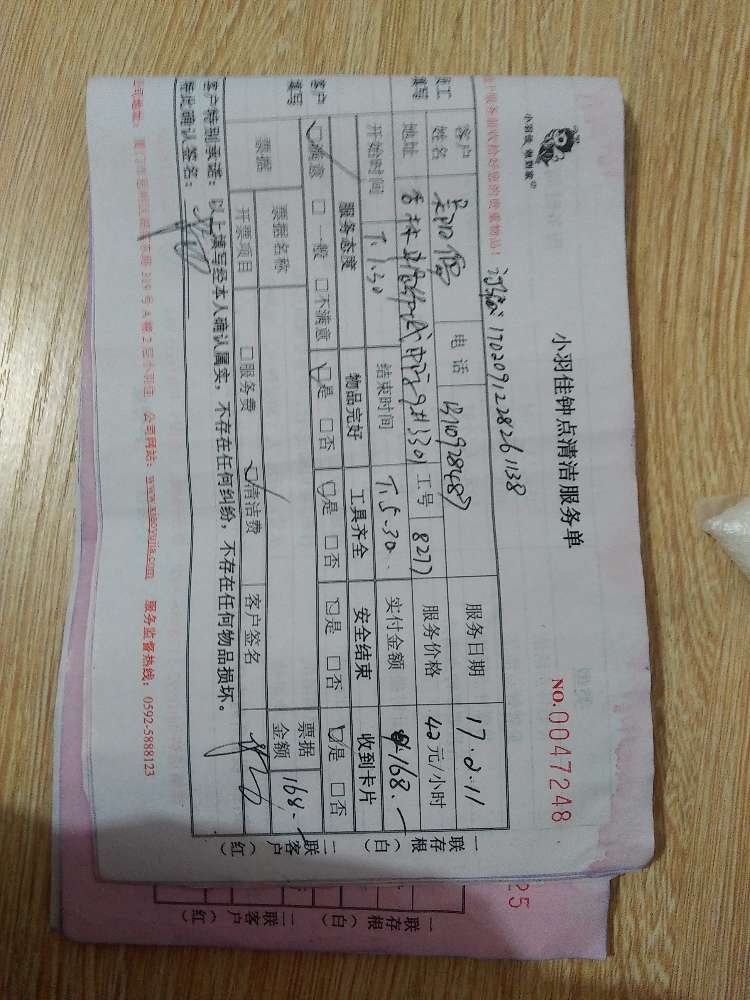 小羽佳 做到家
小羽佳钟点清洁服务单
NO.0047248
1702091228261138
客户姓名 电话 服务日期 17.2.11
地址 3301 工号 8277 服务价格 42元/小时
开始时间 下.1.30 结束时间 下.5.30. 实付金额 168.—
服务态度 物品完好 工具齐全 安全结束 收到卡片
客户填写
☑满意 □一般 □不满意 ☑是 □否 ☑是 □否 ☑是 □否 ☑是 □否
票据 票据名称 票据金额 168.—
开票项目 □服务费 ☑清洁费 客户签名
客户特别承诺：以上填写经本人确认属实，不存在任何纠纷，不存在任何物品损坏。
特此确认签名：
公司网站：www.xiaoyujia.com 服务监督热线：0592-5888123
一联存根（白）
二联客户（红）
25
一联存根（白）
二联客户（红）